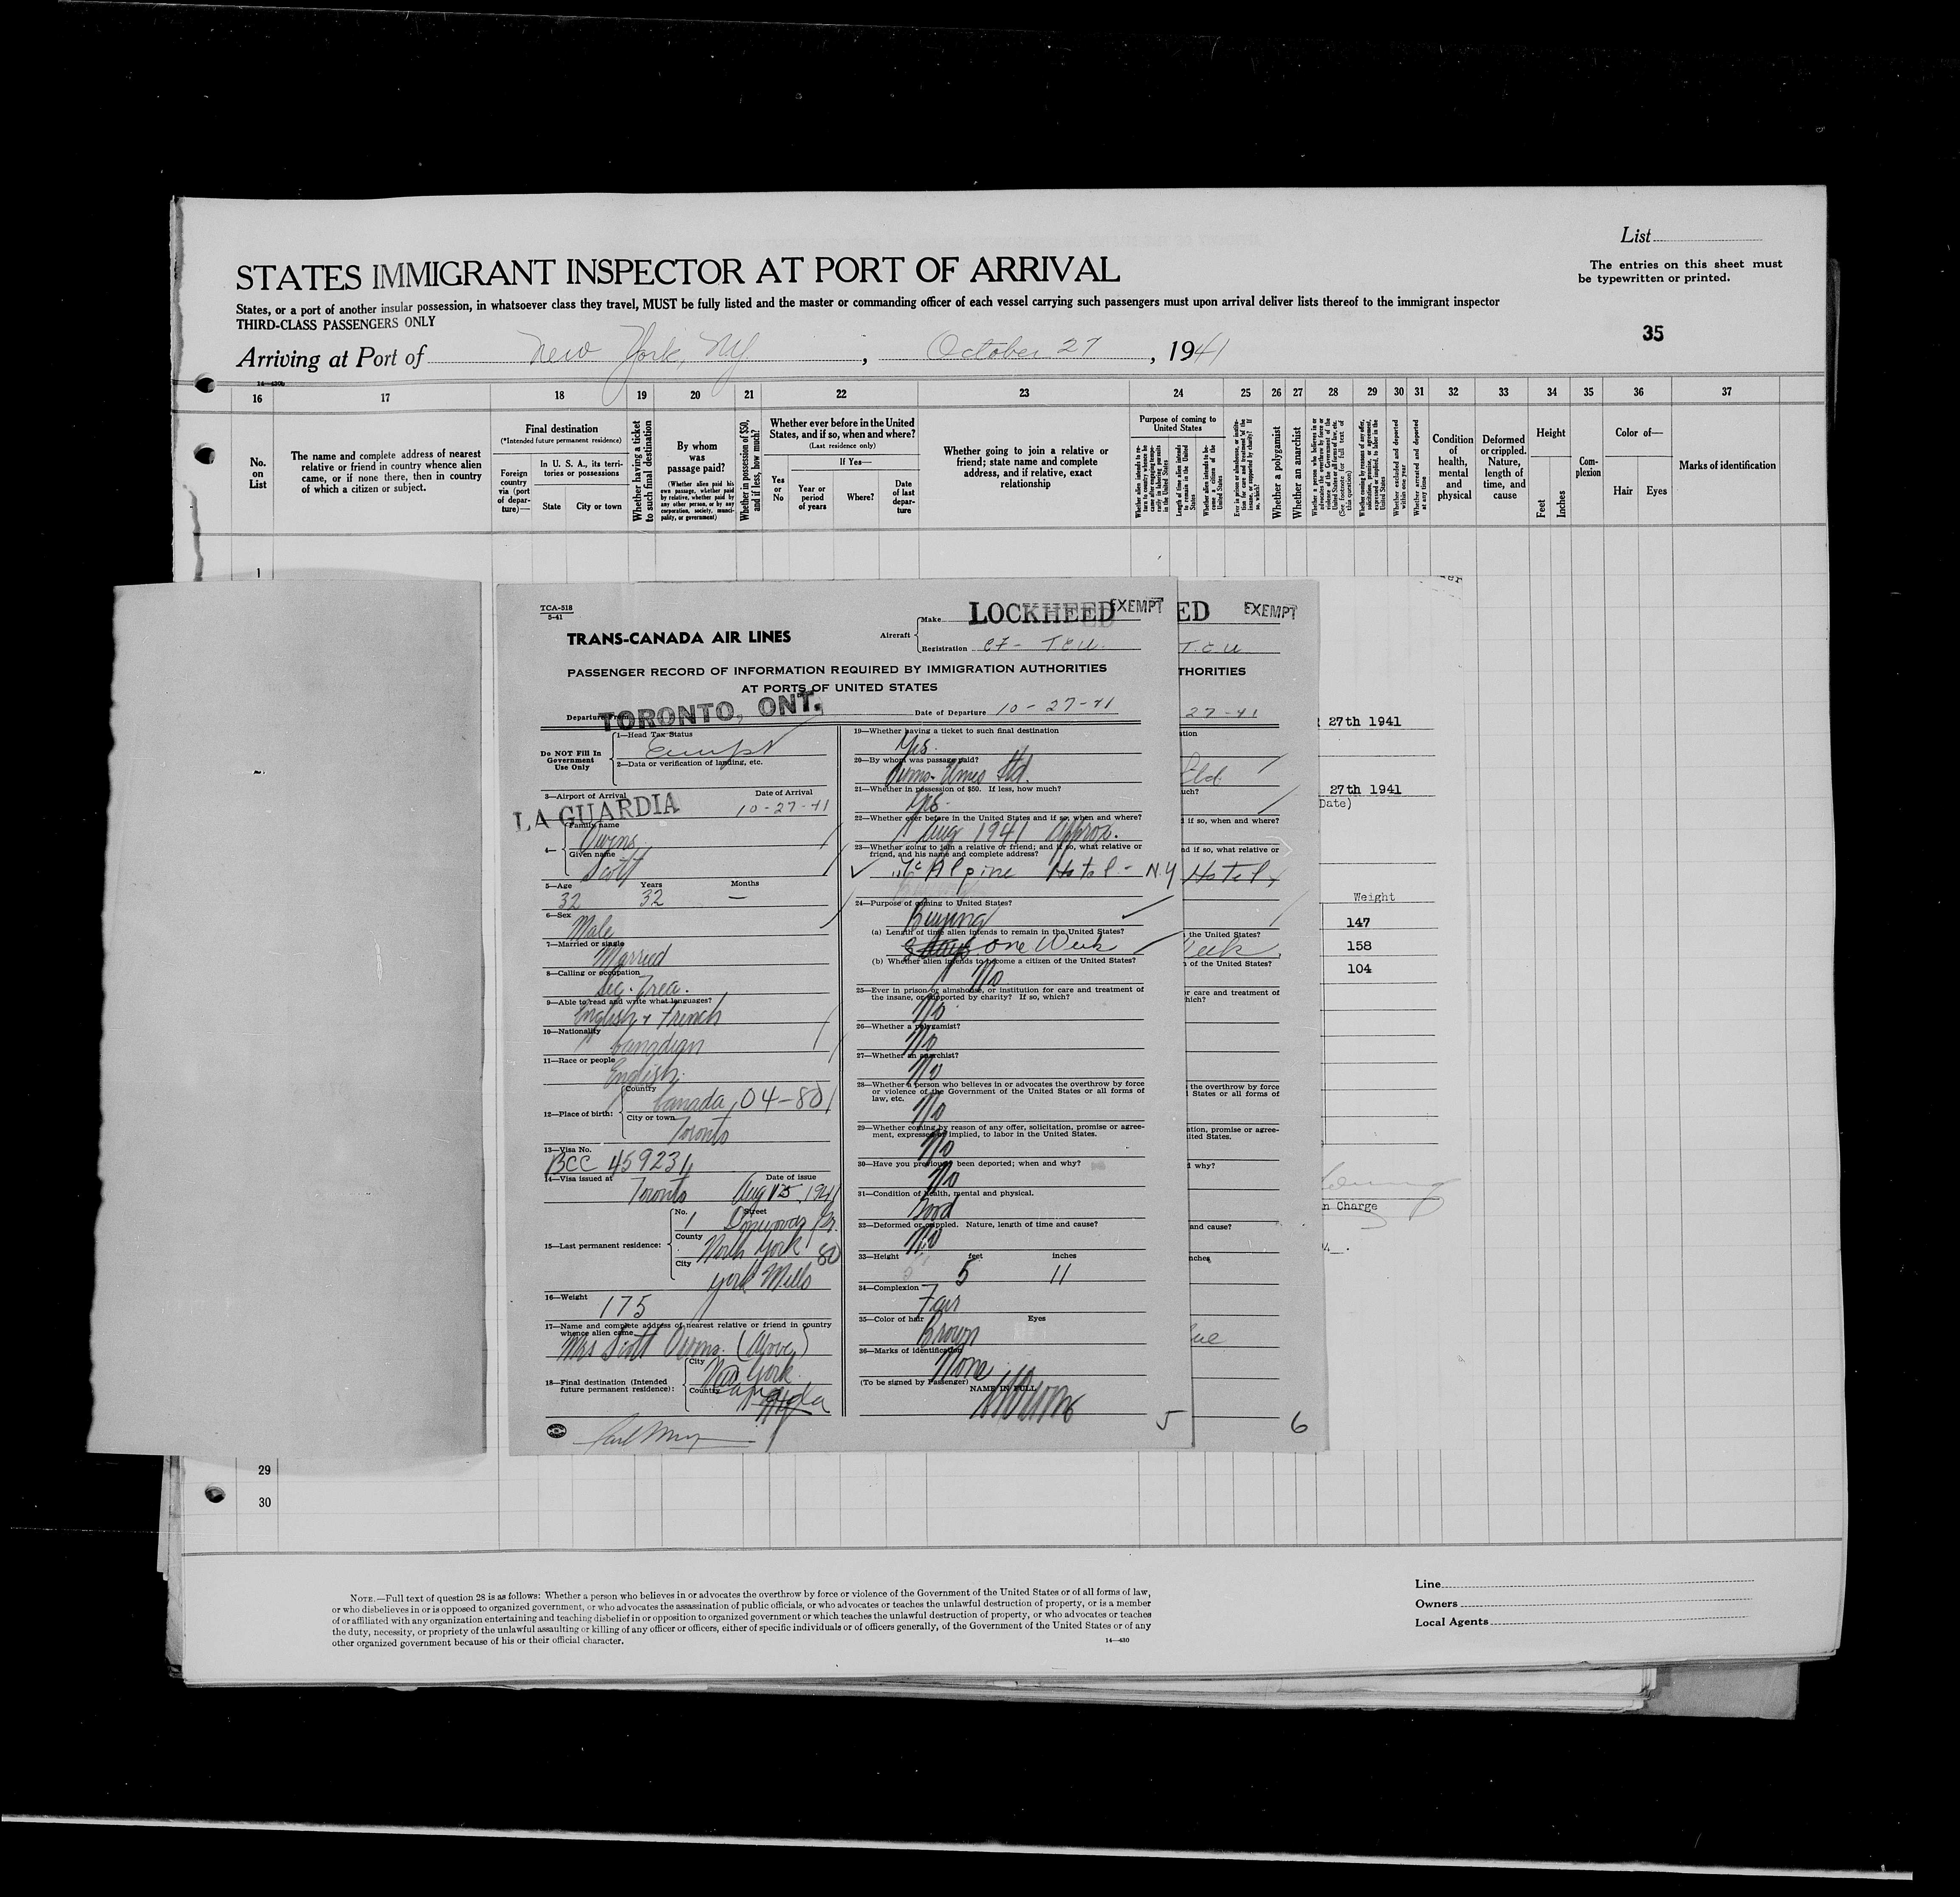 List
The entries on this sheet must
be typewritten or printed.
STATES IMMIGRANT INSPECTOR AT PORT OF ARRIVAL
States, or a port of another insular possession, in whatsoever class they travel, MUST be fully listed and the master or commanding officer of each vessel carrying such passengers must upon arrival deliver lists thereof to the immigrant inspector
THIRD-CLASS PASSENGERS ONLY
35
Arriving at Port of New York, NY , October 27 , 1941
14—430b
16 17 18 19 20 21 22 23 24 25 26 27 28 29 30 31 32 33 34 35 36 37
No. on List
The name and complete address of nearest
relative or friend in country whence alien
came, or if none there, then in country
of which a citizen or subject.
Final destination
(*Intended future permanent residence)
Foreign country via (port of departure)—
In U. S. A., its territories or possessions
State
City or town
Whether having a ticket to such final destination
By whom was passage paid?
(Whether alien paid his own passage, whether paid by relative, whether paid by any other person, or by any corporation, society, municipality, or government)
Whether in possession of $50, and if less, how much?
Whether ever before in the United
States, and if so, when and where?
(Last residence only)
Yes or No
If Yes—
Year or period of years
Where?
Date of last departure
Whether going to join a relative or
friend; state name and complete
address, and if relative, exact
relationship
Purpose of coming to
United States
Length of time alien intends to remain in the United States
Whether alien intends to become a citizen of the United States
Whether a polygamist
Whether an anarchist
Whether excluded and deported within one year
Whether arrested and deported at any time
Condition of health, mental and physical
Deformed or crippled. Nature, length of time, and cause
Height
Feet
Inches
Complexion
Color of—
Hair
Eyes
Marks of identification
1
TCA-518
5-41
TRANS-CANADA AIR LINES
Aircraft
Make LOCKHEED EXEMPT
Registration CF- TCU
PASSENGER RECORD OF INFORMATION REQUIRED BY IMMIGRATION AUTHORITIES
AT PORTS OF UNITED STATES
Departure From TORONTO, ONT.
Date of Departure 10-27-41
Do NOT Fill In
Government
Use Only
1—Head Tax Status
Exempt
2—Data or verification of landing, etc.
3—Airport of Arrival
LA GUARDIA
Date of Arrival
10-27-41
4—
Family name
Owens
Given name
Scott
5—Age Years Months
32 32 —
6—Sex
Male
7—Married or single
Married
8—Calling or occupation
Sec. Trea.
9—Able to read and write what languages?
English + French
10—Nationality
Canadian
11—Race or people
English
12—Place of birth:
Country
Canada, 04-80
City or town
Toronto
13—Visa No.
BCC 459234
14—Visa issued at Date of issue
Toronto Aug 15, 1941
15—Last permanent residence:
No. Street
1
County
North York 80
City
York Mills
16—Weight
175
17—Name and complete address of nearest relative or friend in country
whence alien came
Mrs Scott Owens. (Above)
18—Final destination (Intended
future permanent residence):
City
New York
Country
Canada
19—Whether having a ticket to such final destination
Yes.
20—By whom was passage paid?
Owens-Elmes Ltd.
21—Whether in possession of $50. If less, how much?
Yes.
22—Whether ever before in the United States and if so, when and where?
Aug 1941 Approx.
23—Whether going to join a relative or friend; and if so, what relative or
friend, and his name and complete address?
McAlpine Hotel - N.Y
24—Purpose of coming to United States?
Buying
(a) Length of time alien intends to remain in the United States?
One Week
(b) Whether alien intends to become a citizen of the United States?
No
25—Ever in prison or almshouse, or institution for care and treatment of
the insane, or supported by charity? If so, which?
No
26—Whether a polygamist?
No
27—Whether an anarchist?
No
28—Whether a person who believes in or advocates the overthrow by force
or violence of the Government of the United States or all forms of
law, etc.
No
29—Whether coming by reason of any offer, solicitation, promise or agree-
ment, expressed or implied, to labor in the United States.
No
30—Have you previously been deported; when and why?
No
31—Condition of health, mental and physical.
Good
32—Deformed or crippled. Nature, length of time and cause?
No
33—Height feet inches
5 11
34—Complexion
Fair
35—Color of hair Eyes
Brown
36—Marks of identification
None
(To be signed by Passenger)
NAME IN FULL
5
ED EXEMPT
T.C.U.
THORITIES
27-41
Ltd.
uch?
if so, when and where?
nd if so, what relative or
Hotel
the United States?
eek.
of the United States?
r care and treatment of
hich?
the overthrow by force
States or all forms of
ation, promise or agree-
ited States.
why?
and cause?
nches
ue
6
27th 1941
27th 1941
Date)
Weight
147
158
104
n Charge
29
30
NOTE.—Full text of question 28 is as follows: Whether a person who believes in or advocates the overthrow by force or violence of the Government of the United States or of all forms of law,
or who disbelieves in or is opposed to organized government, or who advocates the assassination of public officials, or who advocates or teaches the unlawful destruction of property, or is a member
of or affiliated with any organization entertaining and teaching disbelief in or opposition to organized government or which teaches the unlawful destruction of property, or who advocates or teaches
the duty, necessity, or propriety of the unlawful assaulting or killing of any officer or officers, either of specific individuals or of officers generally, of the Government of the United States or of any
other organized government because of his or their official character.
14—430
Line
Owners
Local Agents